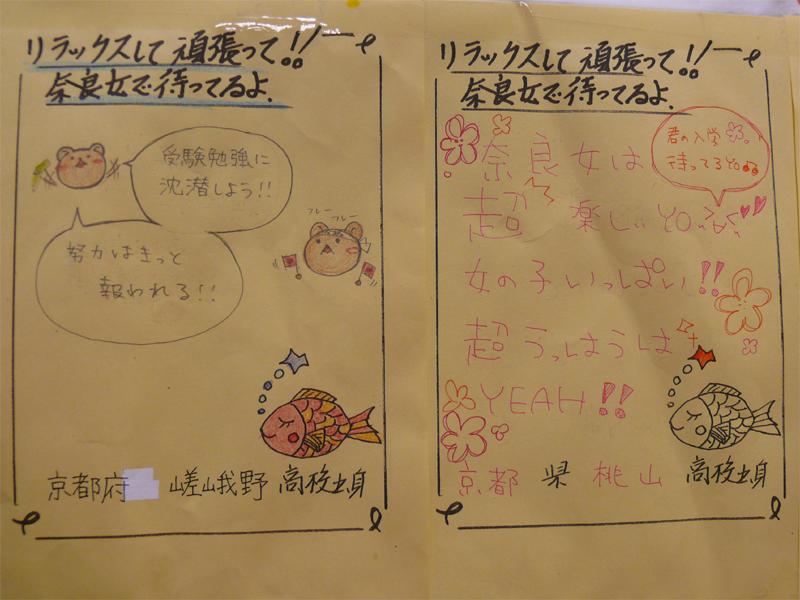 リラックスして頑張って!!
奈良女で待ってるよ.
受験勉強に
沈潜しよう!!
フレー
フレー
努力はきっと
報われる!!
京都府 嵯峨野 高校出身
リラックスして頑張って!!
奈良女で待ってるよ.
君の入学
待ってるYO
奈良女は
超 楽しいYO
女の子いっぱい!!
超うっはうは
YEAH!!
京都 県 桃山 高校出身